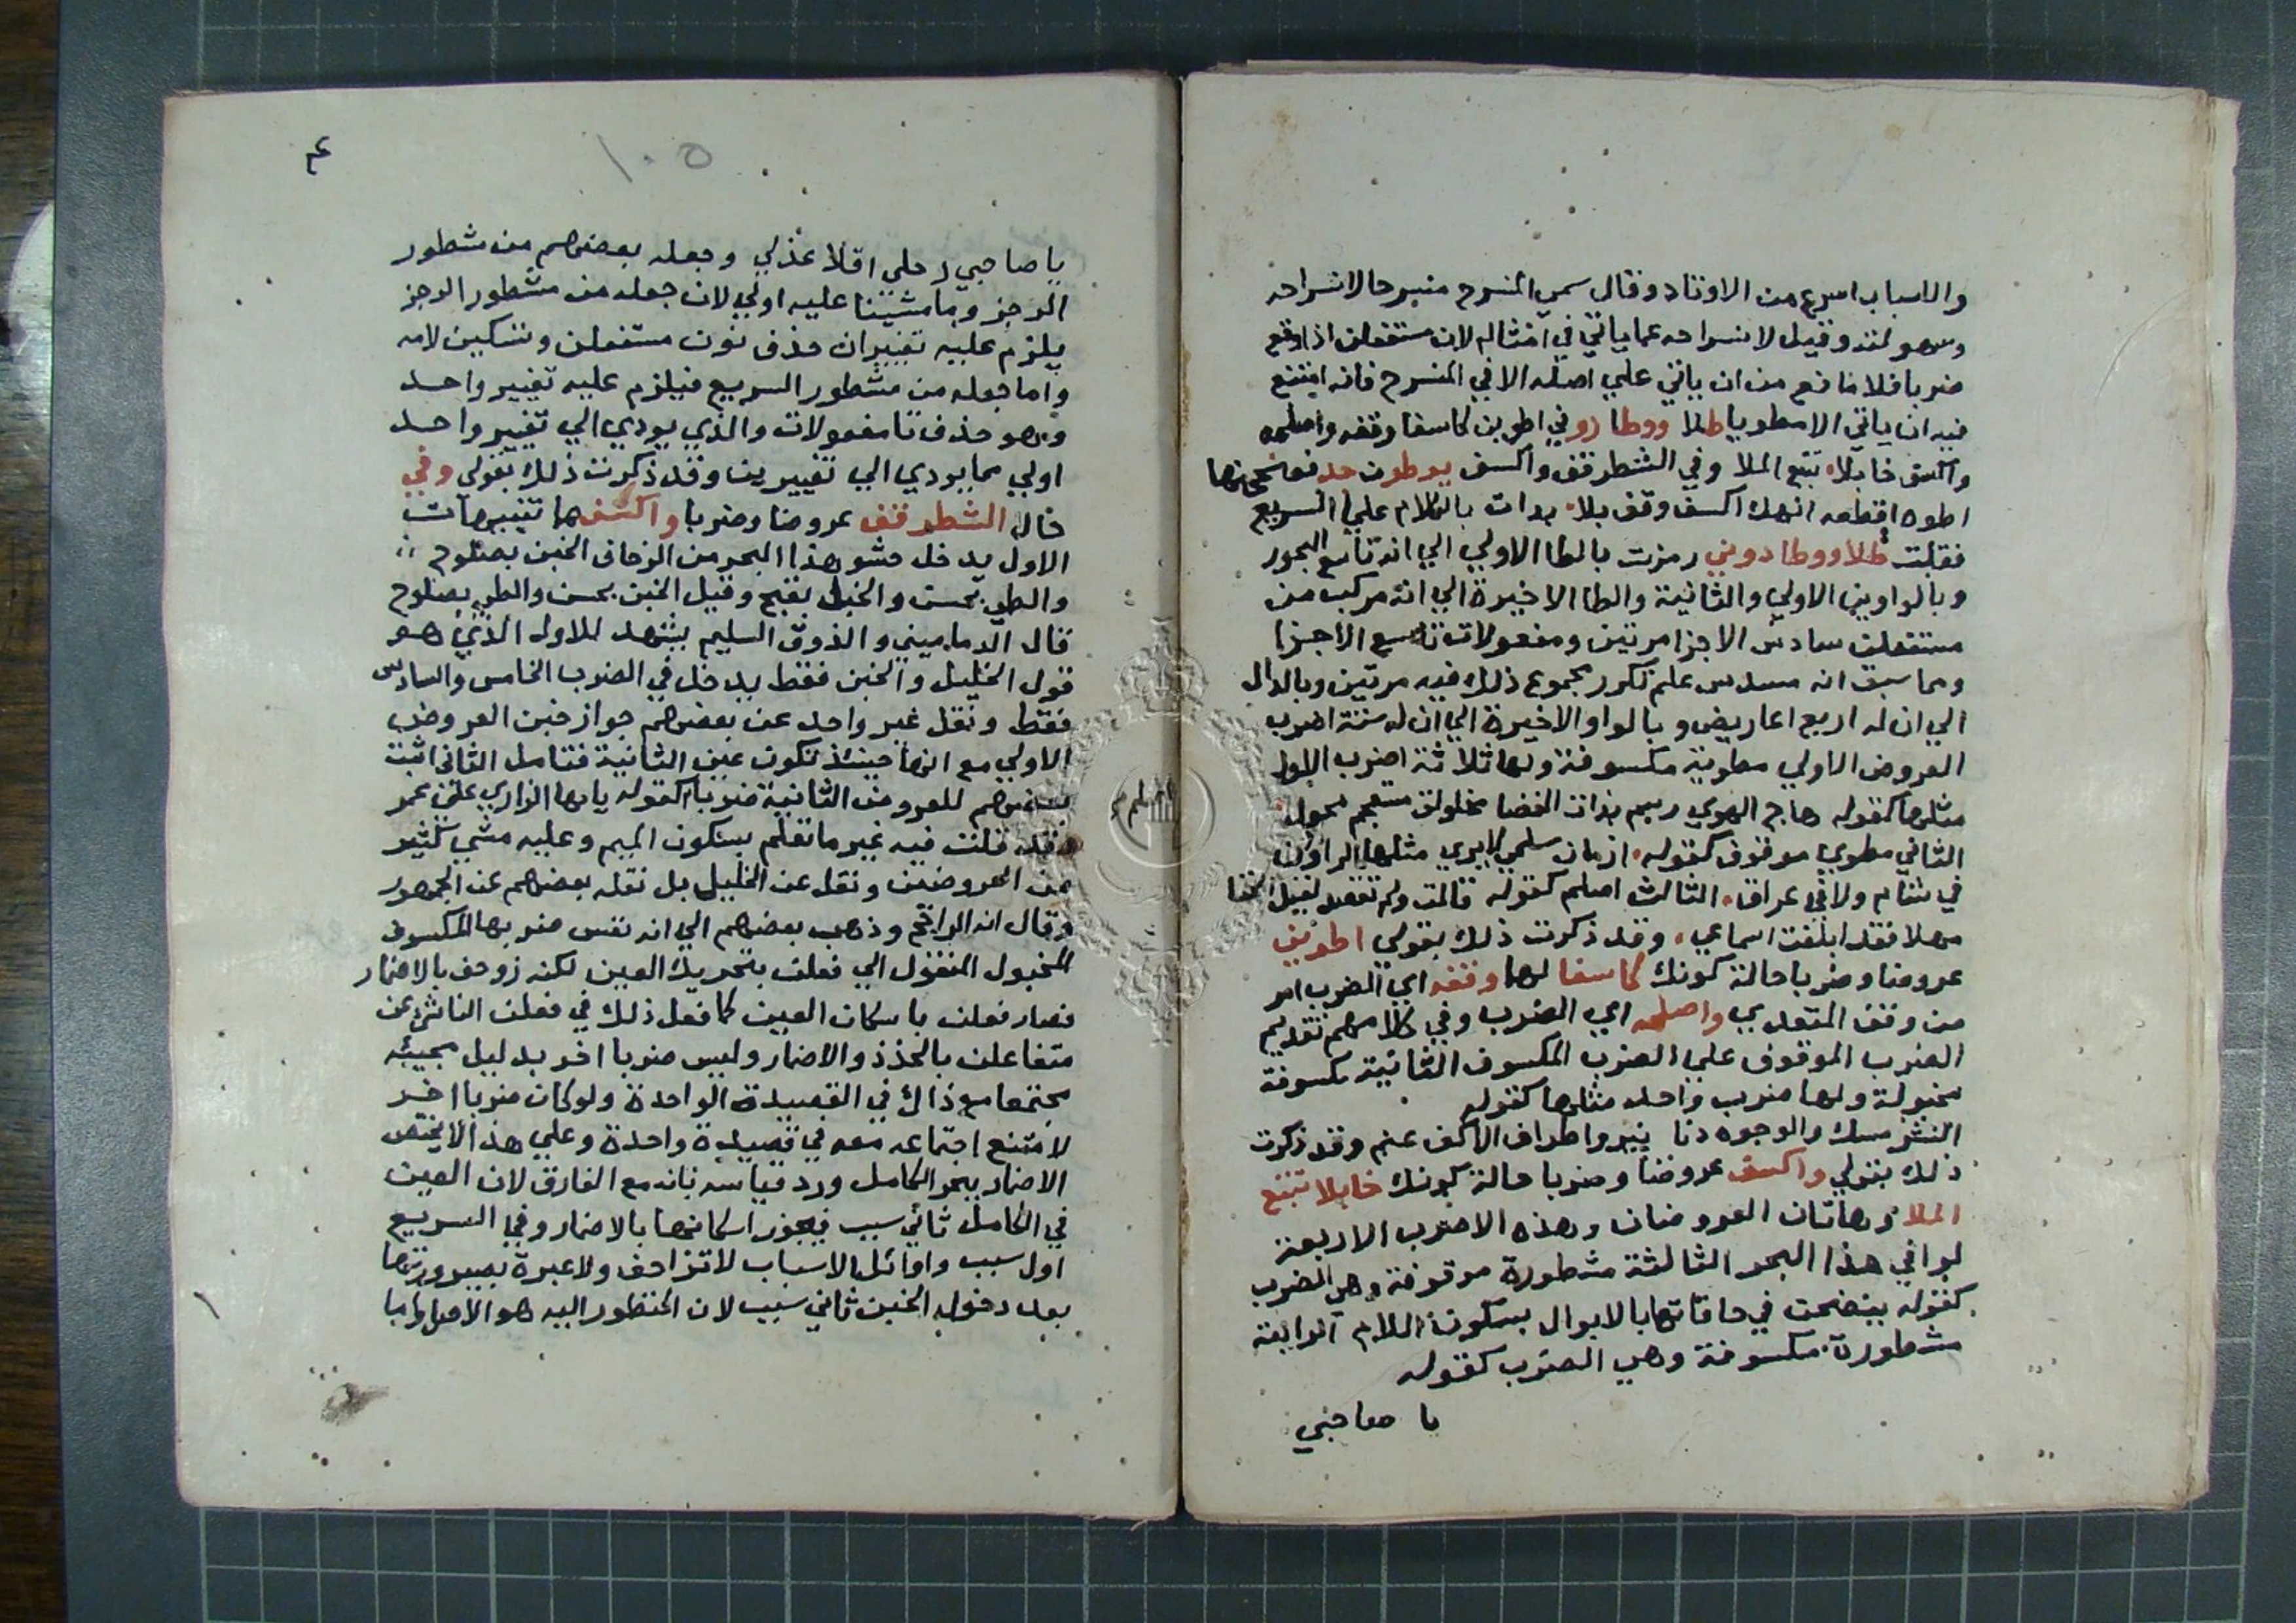 والاسباب اسرع من الاوتاد وقال سمي المنسرح منسرحا لانسراحه
وسهولته وقيل لانسراحه عما ياتي في امثاله لان مستفعلن اذا وقع
ضربا فلا مانع من ان ياتي علي اصله الا في المنسرح فانه امتنع
فيه ان ياتي الا مطويا طلا ووطا دو في اطوين كاسفا وقفه واصلمه
واكسف خابلا تتبع الملا وفي الشطر قف واكسف
اطوه اقطعه انهك اكسف وقف بلا بدات بالكلام علي السريع
فقلت طلا ووطا دوني رمزت بالطا الاولي الي انه تاسع البحور
وبالواوين الاولي والثانية والطا الاخيرة الي انه مركب من
مستفعلن سادس الاجزا مرتين ومفعولات تاسع الاجزا
ومما سبق انه مسدس علم تكرر مجموع ذلك فيه مرتين وبالدال
الي ان له اربع اعاريض وبالواو الاخيرة الي ان له ستة اضرب
العروض الاولي مطوية مكسوفة ولها ثلاثة اضرب الاول
مثلها كقوله هاج الهوي رسم بذات الغضا مخلولق مستعجم محول
الثاني مطوي موقوف كقوله ازمان سلمي لا يري مثلها الراؤن
في شام ولا في عراق الثالث اصلم كقوله قالت ولم تقصد لقيل الخنا
مهلا فقد ابلغت اسماعي وقد ذكرت ذلك بقولي اطوين
عروضا وضربا حالة كونك كاسفا لها وقفه اي الضرب امر
من وقف المتعدي واصلمه اي الضرب وفي كلامهم تقديم
الضرب الموقوف علي الضرب المكسوف الثانية مكسوفة
مخبولة ولها ضرب واحد مثلها كقوله
النشر مسك والوجوه دنا نير واطراف الاكف عنم وقد ذكرت
ذلك بقولي واكسف عروضا وضربا حالة كونك خابلا تتبع
الملا وهاتان العروضان وهذه الاضرب الاربعة
لوافي هذا البحر الثالثة مشطورة موقوفة وهي الضرب
كقوله ينضحن في حافاتها بالابوال بسكون اللام الرابعة
مشطورة مكسوفة وهي الضرب كقوله
يا صاحبي
١٠٥
يا صاحبي رحلي اقلا عذلي وجعله بعضهم من مشطور
الرجز وما مشينا عليه اولي لان جعله من مشطور الرجز
يلزم عليه تغييران حذف نون مستفعلن وتسكين لامه
واما جعله من مشطور السريع فيلزم عليه تغيير واحد
وهو حذف تا مفعولات والذي يودي الي تغيير واحد
اولي مما يودي الي تغييرين وقد ذكرت ذلك بقولي وفي
حال الشطر قف عروضا وضربا واكسفها تنبيهات
الاول يدخل حشو هذا البحر من الزحاف الخبن بصلوح
والطي بحسن والخبل بقبح وقيل الخبن بحسن والطي بصلوح
قال الدماميني والذوق السليم يشهد للاول الذي هو
قول الخليل والخبن فقط يدخل في الضرب الخامس والسادس
فقط ونقل غير واحد عن بعضهم جواز خبن العروض
الاولي مع انها حينئذ تكون عين الثانية فتامل الثاني اثبت
بعضهم للعروض الثانية ضربا كقوله يايها الزاري علي عمر
وقد قلت فيه غير ما تعلم بسكون الميم وعليه مشي كثير
من العروضيين ونقل عن الخليل بل نقله بعضهم عن الجمهور
وقال انه الراجح وذهب بعضهم الي انه نفس ضربها المكسوف
المخبول المنقول الي فعلن بتحريك العين لكنه زوحف بالاضمار
فصار فعلن باسكان العين كما فعل ذلك في فعلن الناشئ عن
متفاعلن بالحذذ والاضمار وليس ضربا اخر بدليل مجيئه
مجتمعا مع ذاك في القصيدة الواحدة ولو كان ضربا اخر
لامتنع اجتماعه معه في قصيدة واحدة وعلي هذا لا يختص
الاضمار ببحر الكامل ورد قياسه بانه مع الفارق لان العين
في الكامل ثاني سبب فيجوز اسكانها بالاضمار وفي السريع
اول سبب واوائل الاسباب لا تزاحف ولا عبرة بصيرورتها
بعد دخول الخبن ثاني سبب لان المنظور اليه هو الاصل واما